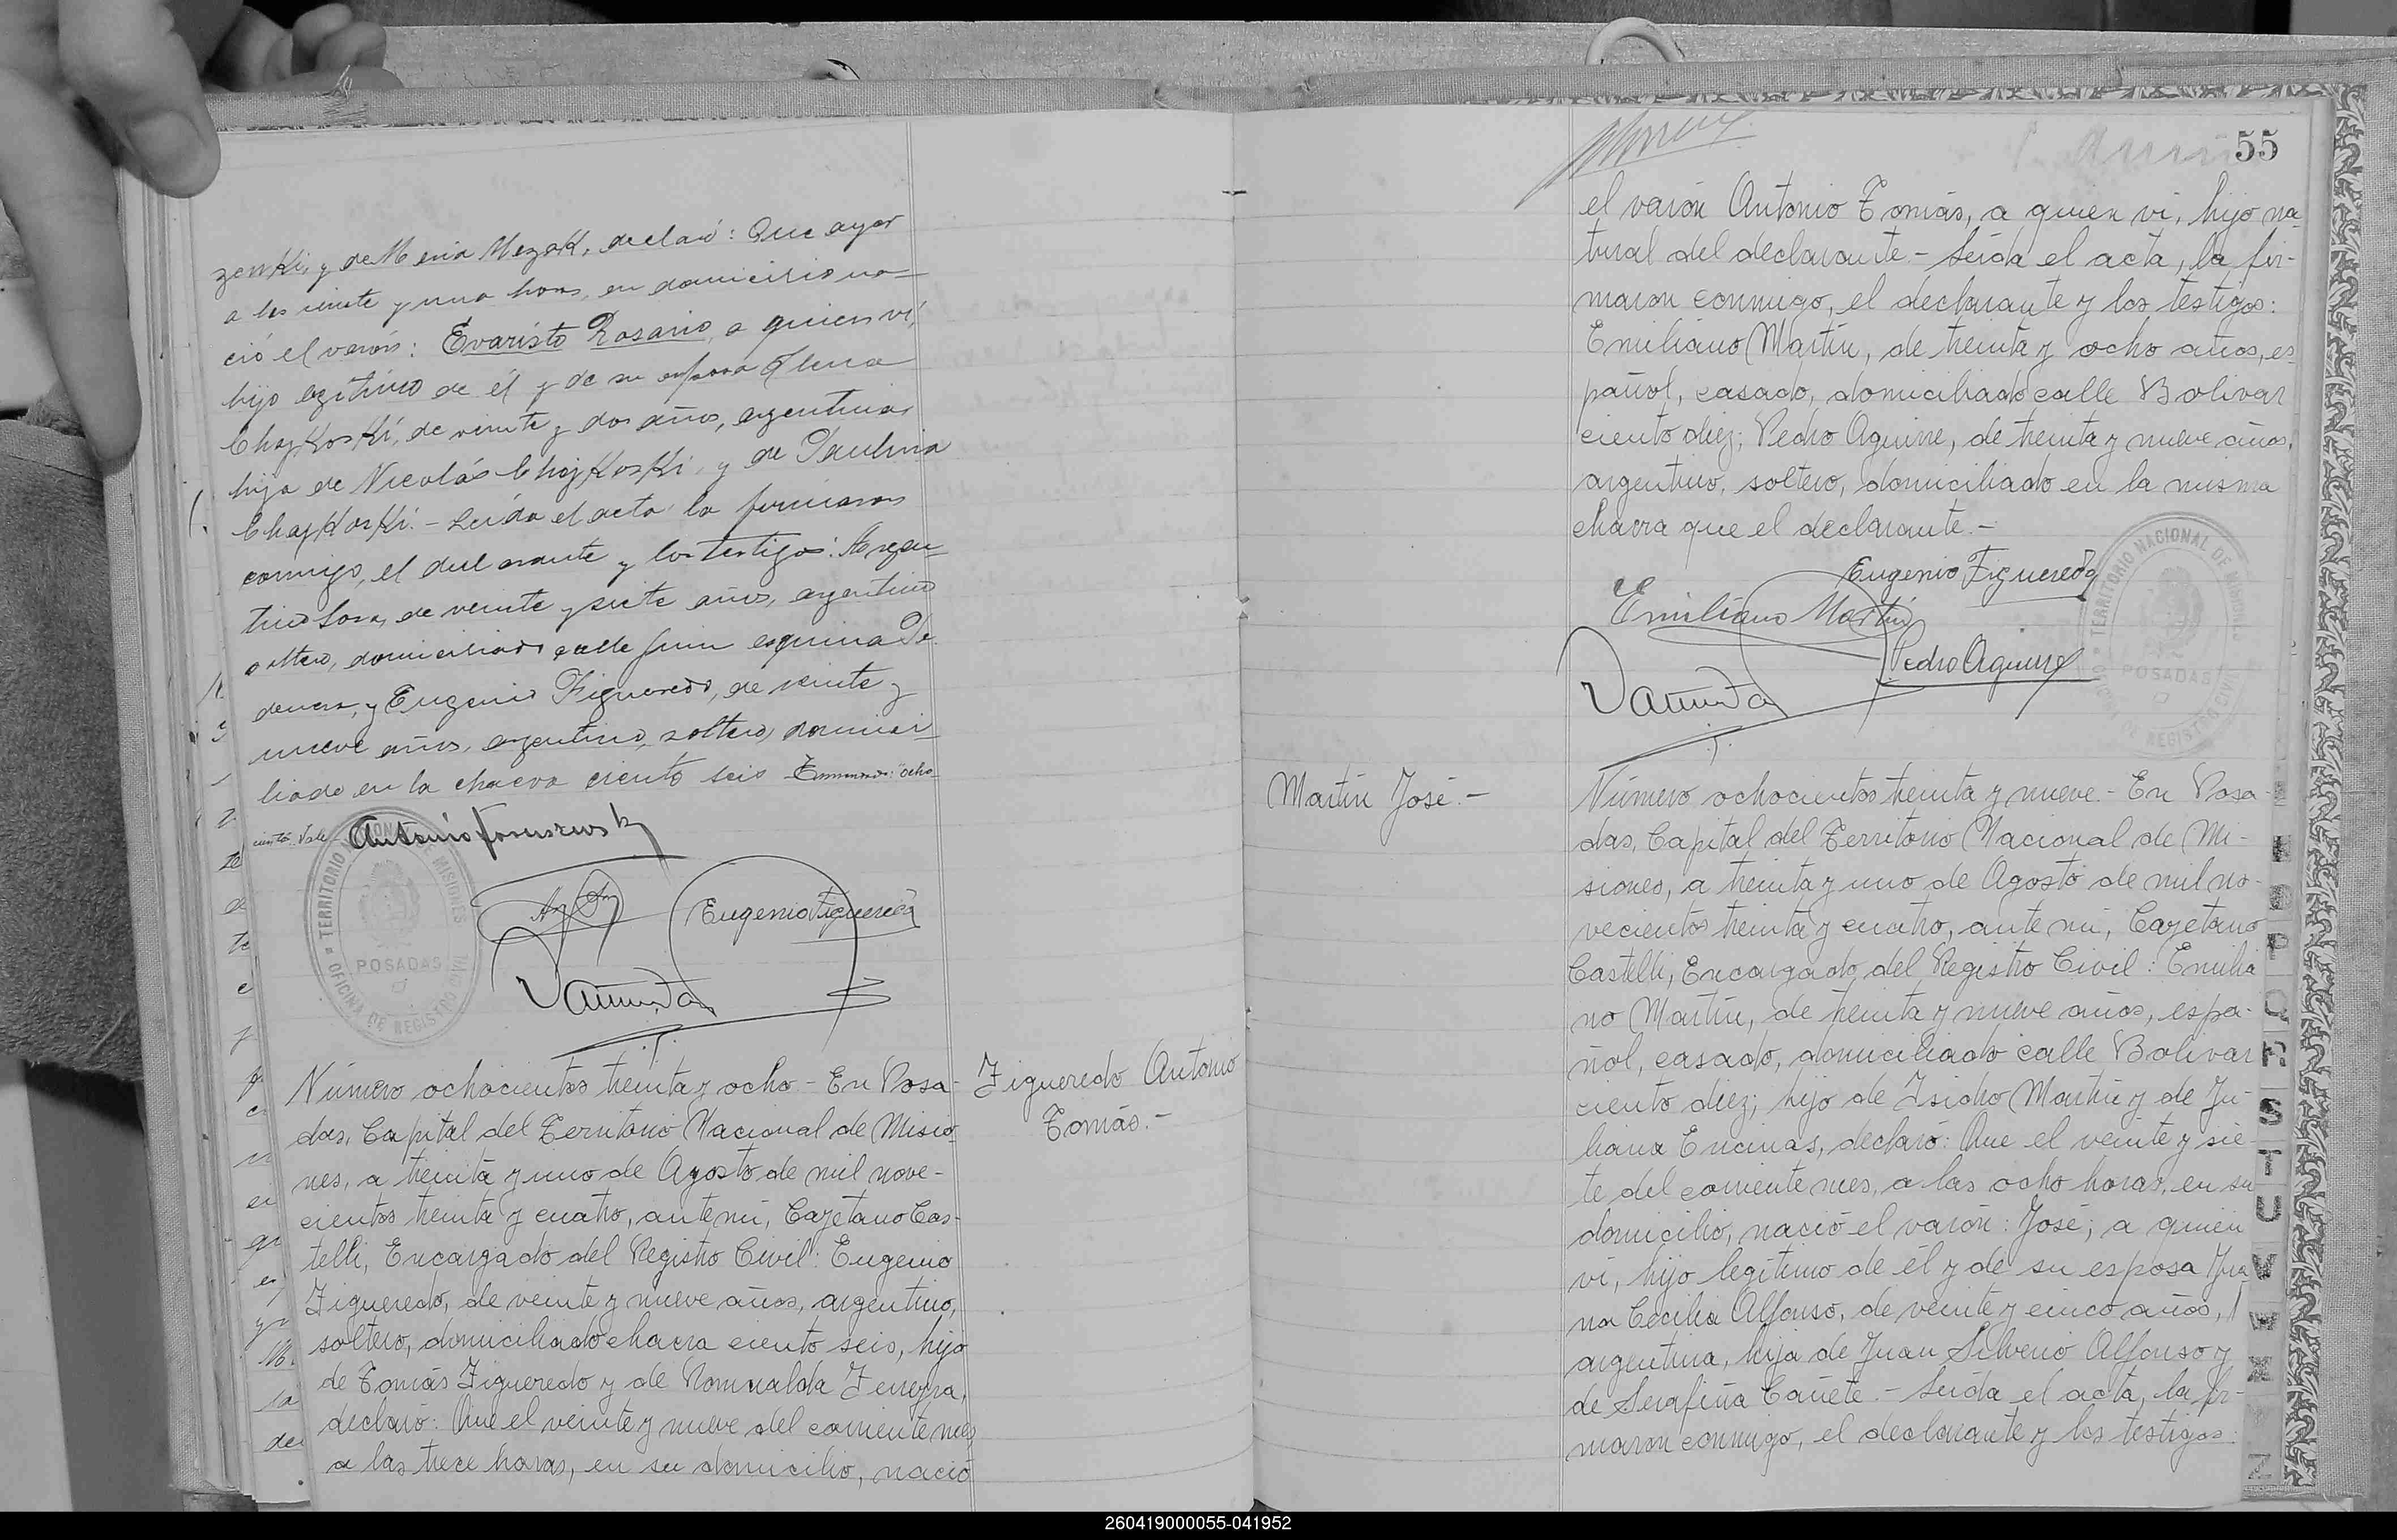 zenski, y de Maria Mezak, declaró: Que ayer
a las veinte y una horas, en domicilio na-
ció el varón: Evaristo Rosario, a quien ví,
hijo legítimo de él y de su esposa Elena
Chajkoski, de veinte y dos años, argentina,
hija de Nicolás Chajkoski, y de Paulina
Chajkoski. - Leída el acta la firmaron
conmigo, el declarante y los testigos:
tino Sosa, de veinte y siete años, argentino
soltero, domiciliado calle Junin esquina
y Eugenio Figueredo, de veinte y
nueve años, argentino, soltero, domici-
liado en la chacra ciento seis Enmendado: "ocho-
cientos" Vale
Antonio
Eugenio Figueredo
TERRITORIO NACIONAL DE MISIONES
POSADAS
OFICINA DE REGISTRO CIVIL
Número ochocientos treinta y ocho - En Posa-
das, Capital del Territorio Nacional de Misio-
nes, a treinta y uno de Agosto de mil nove-
cientos treinta y cuatro, ante mí, Cayetano Cas-
telli, Encargado del Registro Civil: Eugenio
Figueredo, de veinte y nueve años, argentino,
soltero, domiciliado chacra ciento seis, hijo
de Tomás Figueredo y de Romualda Ferreyra,
declaró: Que el veinte y nueve del corriente mes,
a las trece horas, en su domicilio, nació
Figueredo Antonio
Tomás.-
55
el varón Antonio Tomás, a quien vi, hijo na-
tural del declarante.- Leída el acta, la fir-
maron conmigo, el declarante y los testigos:
Emiliano Martín, de treinta y ocho años, es-
pañol, casado, domiciliado calle Bolivar
ciento diez; Pedro Aguirre, de treinta y nueve años,
argentino, soltero, domiciliado en la misma
chacra que el declarante.-
Eugenio Figueredo
Emiliano Martín
Pedro Aguirre
TERRITORIO NACIONAL DE MISIONES
POSADAS
OFICINA DE REGISTRO CIVIL
Martín José.-
Número ochocientos treinta y nueve.- En Posa-
das, Capital del Territorio Nacional de Mi-
siones, a treinta y uno de Agosto de mil no-
vecientos treinta y cuatro, ante mí, Cayetano
Castelli, Encargado del Registro Civil: Emilia-
no Martín, de treinta y nueve años, espa-
ñol, casado, domiciliado calle Bolivar
ciento diez; hijo de Isidro Martín y de Ju-
liana Encinas, declaró: Que el veinte y sie-
te del corriente mes, a las ocho horas, en su
domicilio, nació el varón: José, a quien
vi, hijo legítimo de él y de su esposa Jua-
na Cecilia Alfonso, de veinte y cinco años,
argentina, hija de Juan Silverio Alfonso y
de Serafina Cañete.- Leída el acta, la fir-
maron conmigo, el declarante y los testigos:
P
Q
R
S
T
U
V
W
X
Z
260419000055-041952